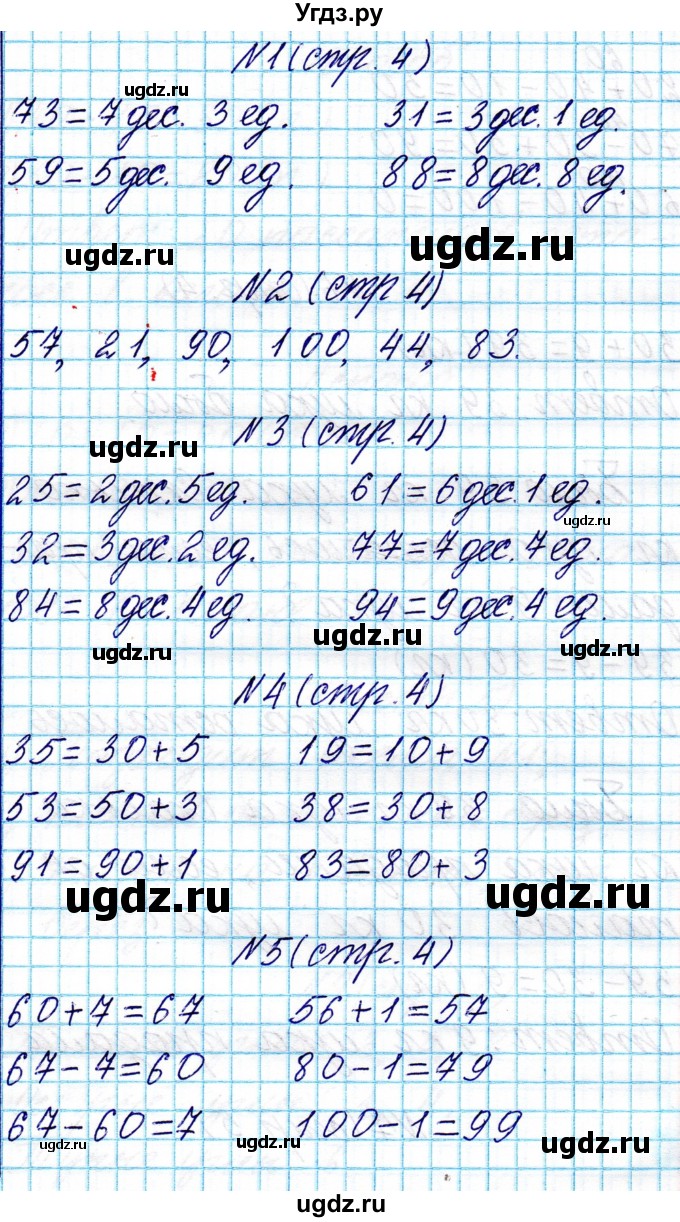 Угдз.ру
№1 (стр. 4)
ugdz.ru
73=7 дес. 3 ед. 31=3 дес. 1 ед.
ugdz.ru
59=5 дес. 9 ед. 88=8 дес. 8 ед.
ugdz.ru ugdz.ru
№2 (стр 4)
57, 21, 90, 100, 44, 83.
№3 (стр. 4)
ugdz.ru
25=2 дес. 5 ед. 61=6 дес. 1 ед.
ugdz.ru
32=3 дес. 2 ед. 77=7 дес. 7 ед.
84=8 дес. 4 ед. 94=9 дес. 4 ед.
ugdz.ru ugdz.ru ugdz.ru
№4 (стр. 4)
35=30+5 19=10+9
53=50+3 38=30+8
91=90+1 83=80+3
ugdz.ru ugdz.ru
№5 (стр. 4)
60+7=67 56+1=57
67-7=60 80-1=79
67-60=7 100-1=99
ugdz.ru ugdz.ru ugdz.ru
ugdz.ru